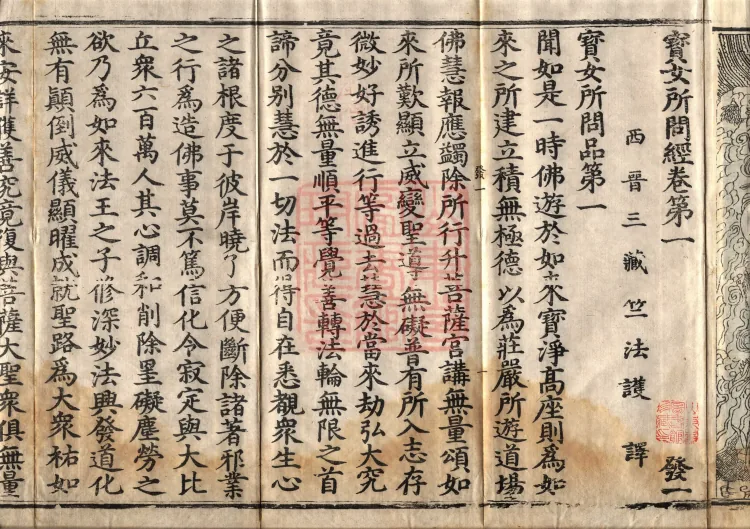 寶女所問經卷第一 發一
西晉三藏竺法護 譯
寶女所問品第一
聞如是一時佛遊於如來寶淨高座則爲如
來之所建立積無極德以爲莊嚴所遊道場
發一
佛慧報應蠲除所行升菩薩宮講無量頌如
來所歎顯立威變聖導無礙普有所入志存
微妙好誘進行等過去慧於當來劫弘大究
竟其德無量順平等覺善轉法輪無限之首
諦分別慧於一切法而得自在悉覩衆生心
之諸根度于彼岸曉了方便斷除諸著邪業
之行爲造佛事莫不篤信化令寂定與大比
丘衆六百萬人其心調和削除罣礙塵勞之
欲乃爲如來法王之子修深妙法興發道化
無有顛倒威儀顯曜成就聖路爲大衆祐如
來安詳獲善究竟復與菩薩大聖衆俱無量